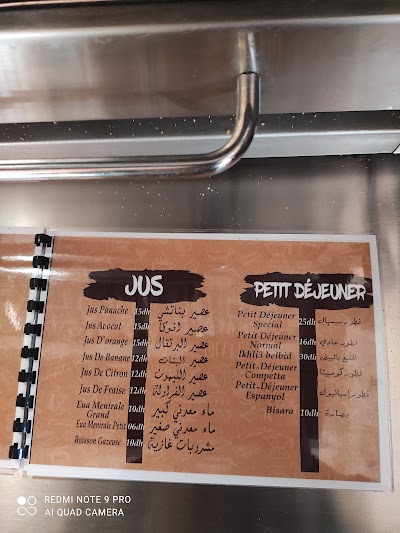 JUS
Jus Panache 15dh عصير بناتشي
Jus Avocat 15dh عصير افوكا
Jus D'orange 15dh عصير البرتقال
Jus De Banane 12dh عصير البنان
Jus De Citron 12dh عصير الليمون
Jus De Fraise 12dh عصير الفراولة
Eua Menirale Grand 10dh ماء معدني كبير
Eua Menirale Petit 06dh ماء معدني صغير
Boisson Gazeuse 10dh مشروبات غازية
PETIT DÉJEUNER
Petit Déjeuner Special 25dh فطور سبيسيال
Petit Déjeuner Normal 16dh فطور عادي
Ikhli3 belbid 30dh الخليع بالبيض
Petit-Déjeuner Competta فطور كومبيتا
Petit-Déjeuner Espanyol فطور إسبانيول
Bisara 10dh بيصارة
REDMI NOTE 9 PRO
AI QUAD CAMERA